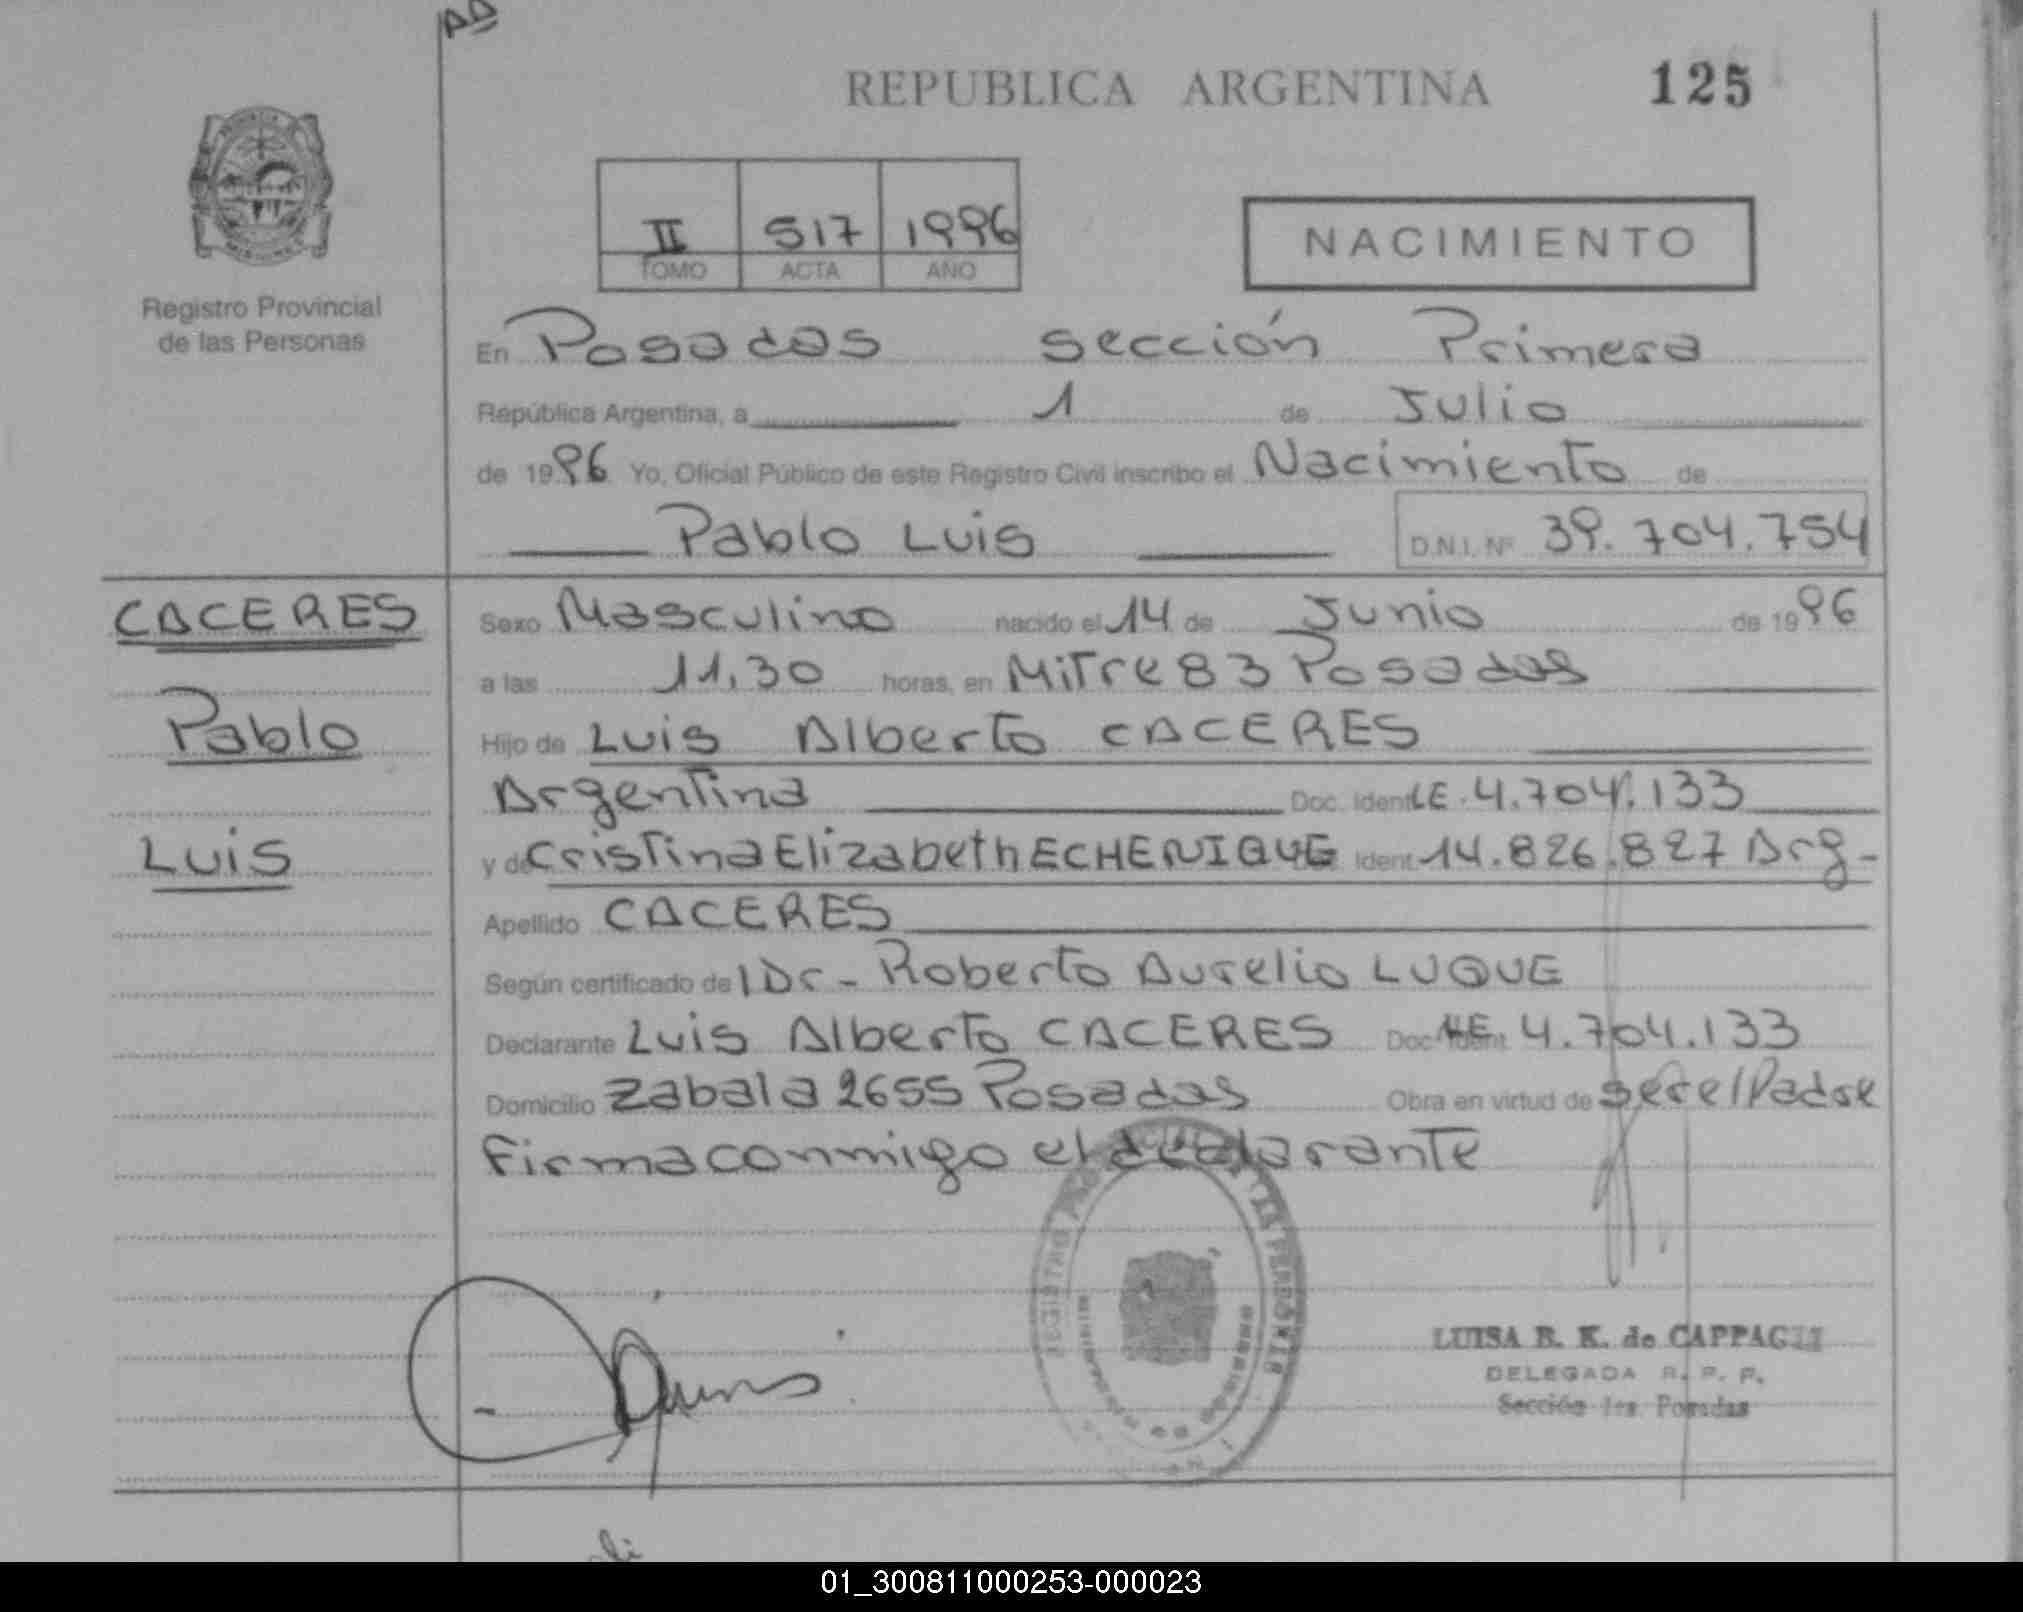 REPUBLICA ARGENTINA 125
II 517 1996
TOMO ACTA AÑO
NACIMIENTO
Registro Provincial
de las Personas
En Posadas sección Primera
República Argentina, a 1 de Julio
de 1996 Yo, Oficial Público de este Registro Civil inscribo el Nacimiento de
Pablo Luis D.N.I. Nº 39.704.754
CACERES
Pablo
Luis
Sexo Masculino nacido el 14 de Junio de 1996
a las 11,30 horas, en Mitre 83 Posadas
Hijo de Luis Alberto CACERES
Argentina Doc. Ident LE. 4.704.133
y de Cristina Elizabeth ECHENIQUE Ident 14.826.827 Arg-
Apellido CACERES
Según certificado de l Dr- Roberto Aurelio LUQUE
Declarante Luis Alberto CACERES Doc. Ident LE. 4.704.133
Domicilio Zabala 2655 Posadas Obra en virtud de ser el Padre
Firma conmigo el declarante
LUISA B. K. de CAPPAGLI
DELEGADA R. P. P.
Sección 1ra. Posadas
01_300811000253-000023